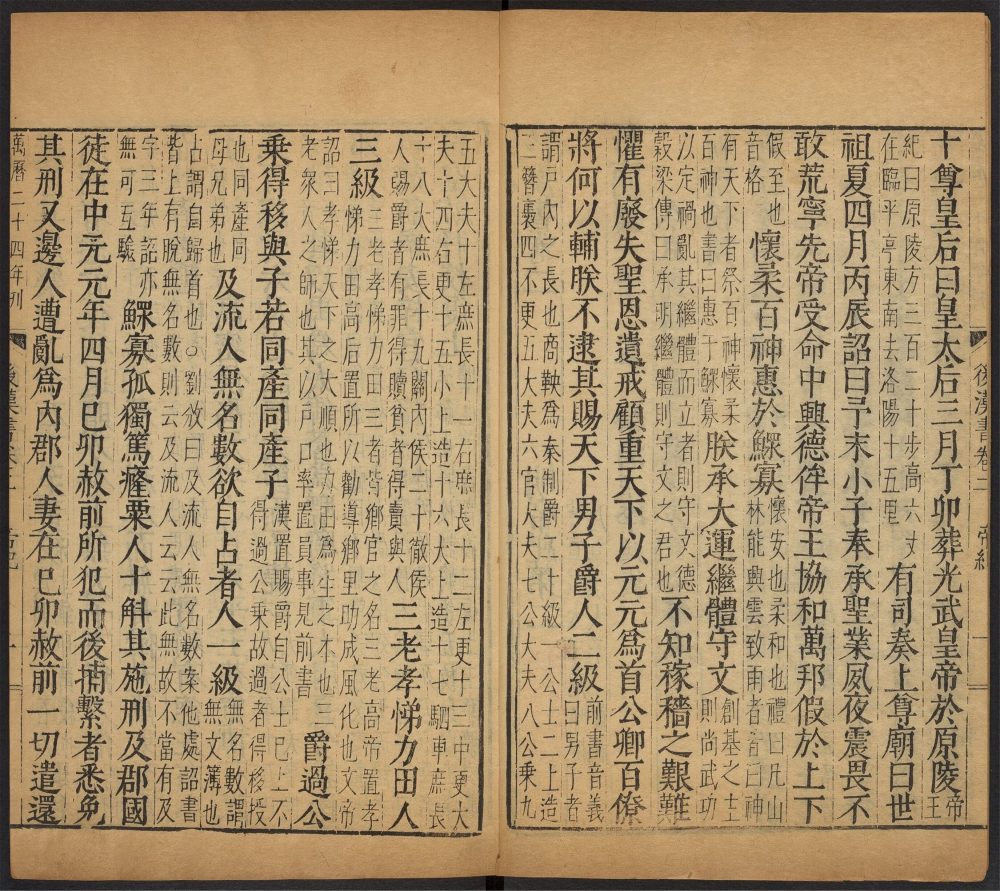 後漢書卷二 帝紀 一
十尊皇后曰皇太后三月丁卯葬光武皇帝於原陵帝王
紀曰原陵方三百二十步高六丈
在臨平亭東南去洛陽十五里
有司奏上尊廟曰世
祖夏四月丙辰詔曰予末小子奉承聖業夙夜震畏不
敢荒寧先帝受命中興德侔帝王協和萬邦假於上下
假至也
音格
懷柔百神惠於鰥寡
懷安也柔和也禮曰凡山
林能興雲致雨者皆曰神
有天下者祭百神懷柔
百神也書曰惠于鰥寡
朕承大運繼體守文
創基之士
則尚武功
以定禍亂其繼體而立者則守文德
穀梁傳曰承明繼體則守文之君也
不知稼穡之艱難
懼有廢失聖恩遺戒顧重天下以元元爲首公卿百僚
將何以輔朕不逮其賜天下男子爵人二級
前書音義
曰男子者
謂戶內之長也商鞅爲秦制爵二十級一公士二上造
三簪裹四不更五大夫六官大夫七公大夫八公乘九
五大夫十左庶長十一右庶長十二左更十三中更大
夫十四右更十五小上造十六大上造十七駟車庶長
十八大庶長十九關內侯二十徹侯
人賜爵者有罪得贖貧者得賣與人
三老孝悌力田人
三級
三老孝悌力田三者皆鄉官之名三老高帝置孝
悌力田高后置所以勸導鄉里助成風化也文帝
詔曰孝悌天下之大順也力田爲生之本也三
老衆人之師也其以戶口率置員事見前書
爵過公
乘得移與子若同產同產子
漢置賜爵自公士已上不
得過公乘故過者得移授
也同產同
母兄弟也
及流人無名數欲自占者人一級
無名數謂
無文簿也
占謂自歸首也○劉攽曰及流人無名數案他處詔書
皆上有脫無名數則云及流人云云此無故不當有及
字三年詔亦
無可互驗
鰥寡孤獨篤癃粟人十斛其施刑及郡國
徒在中元元年四月己卯赦前所犯而後捕繫者悉免
其刑又邊人遭亂爲內郡人妻在己卯赦前一切遣還
萬曆二十四年刊